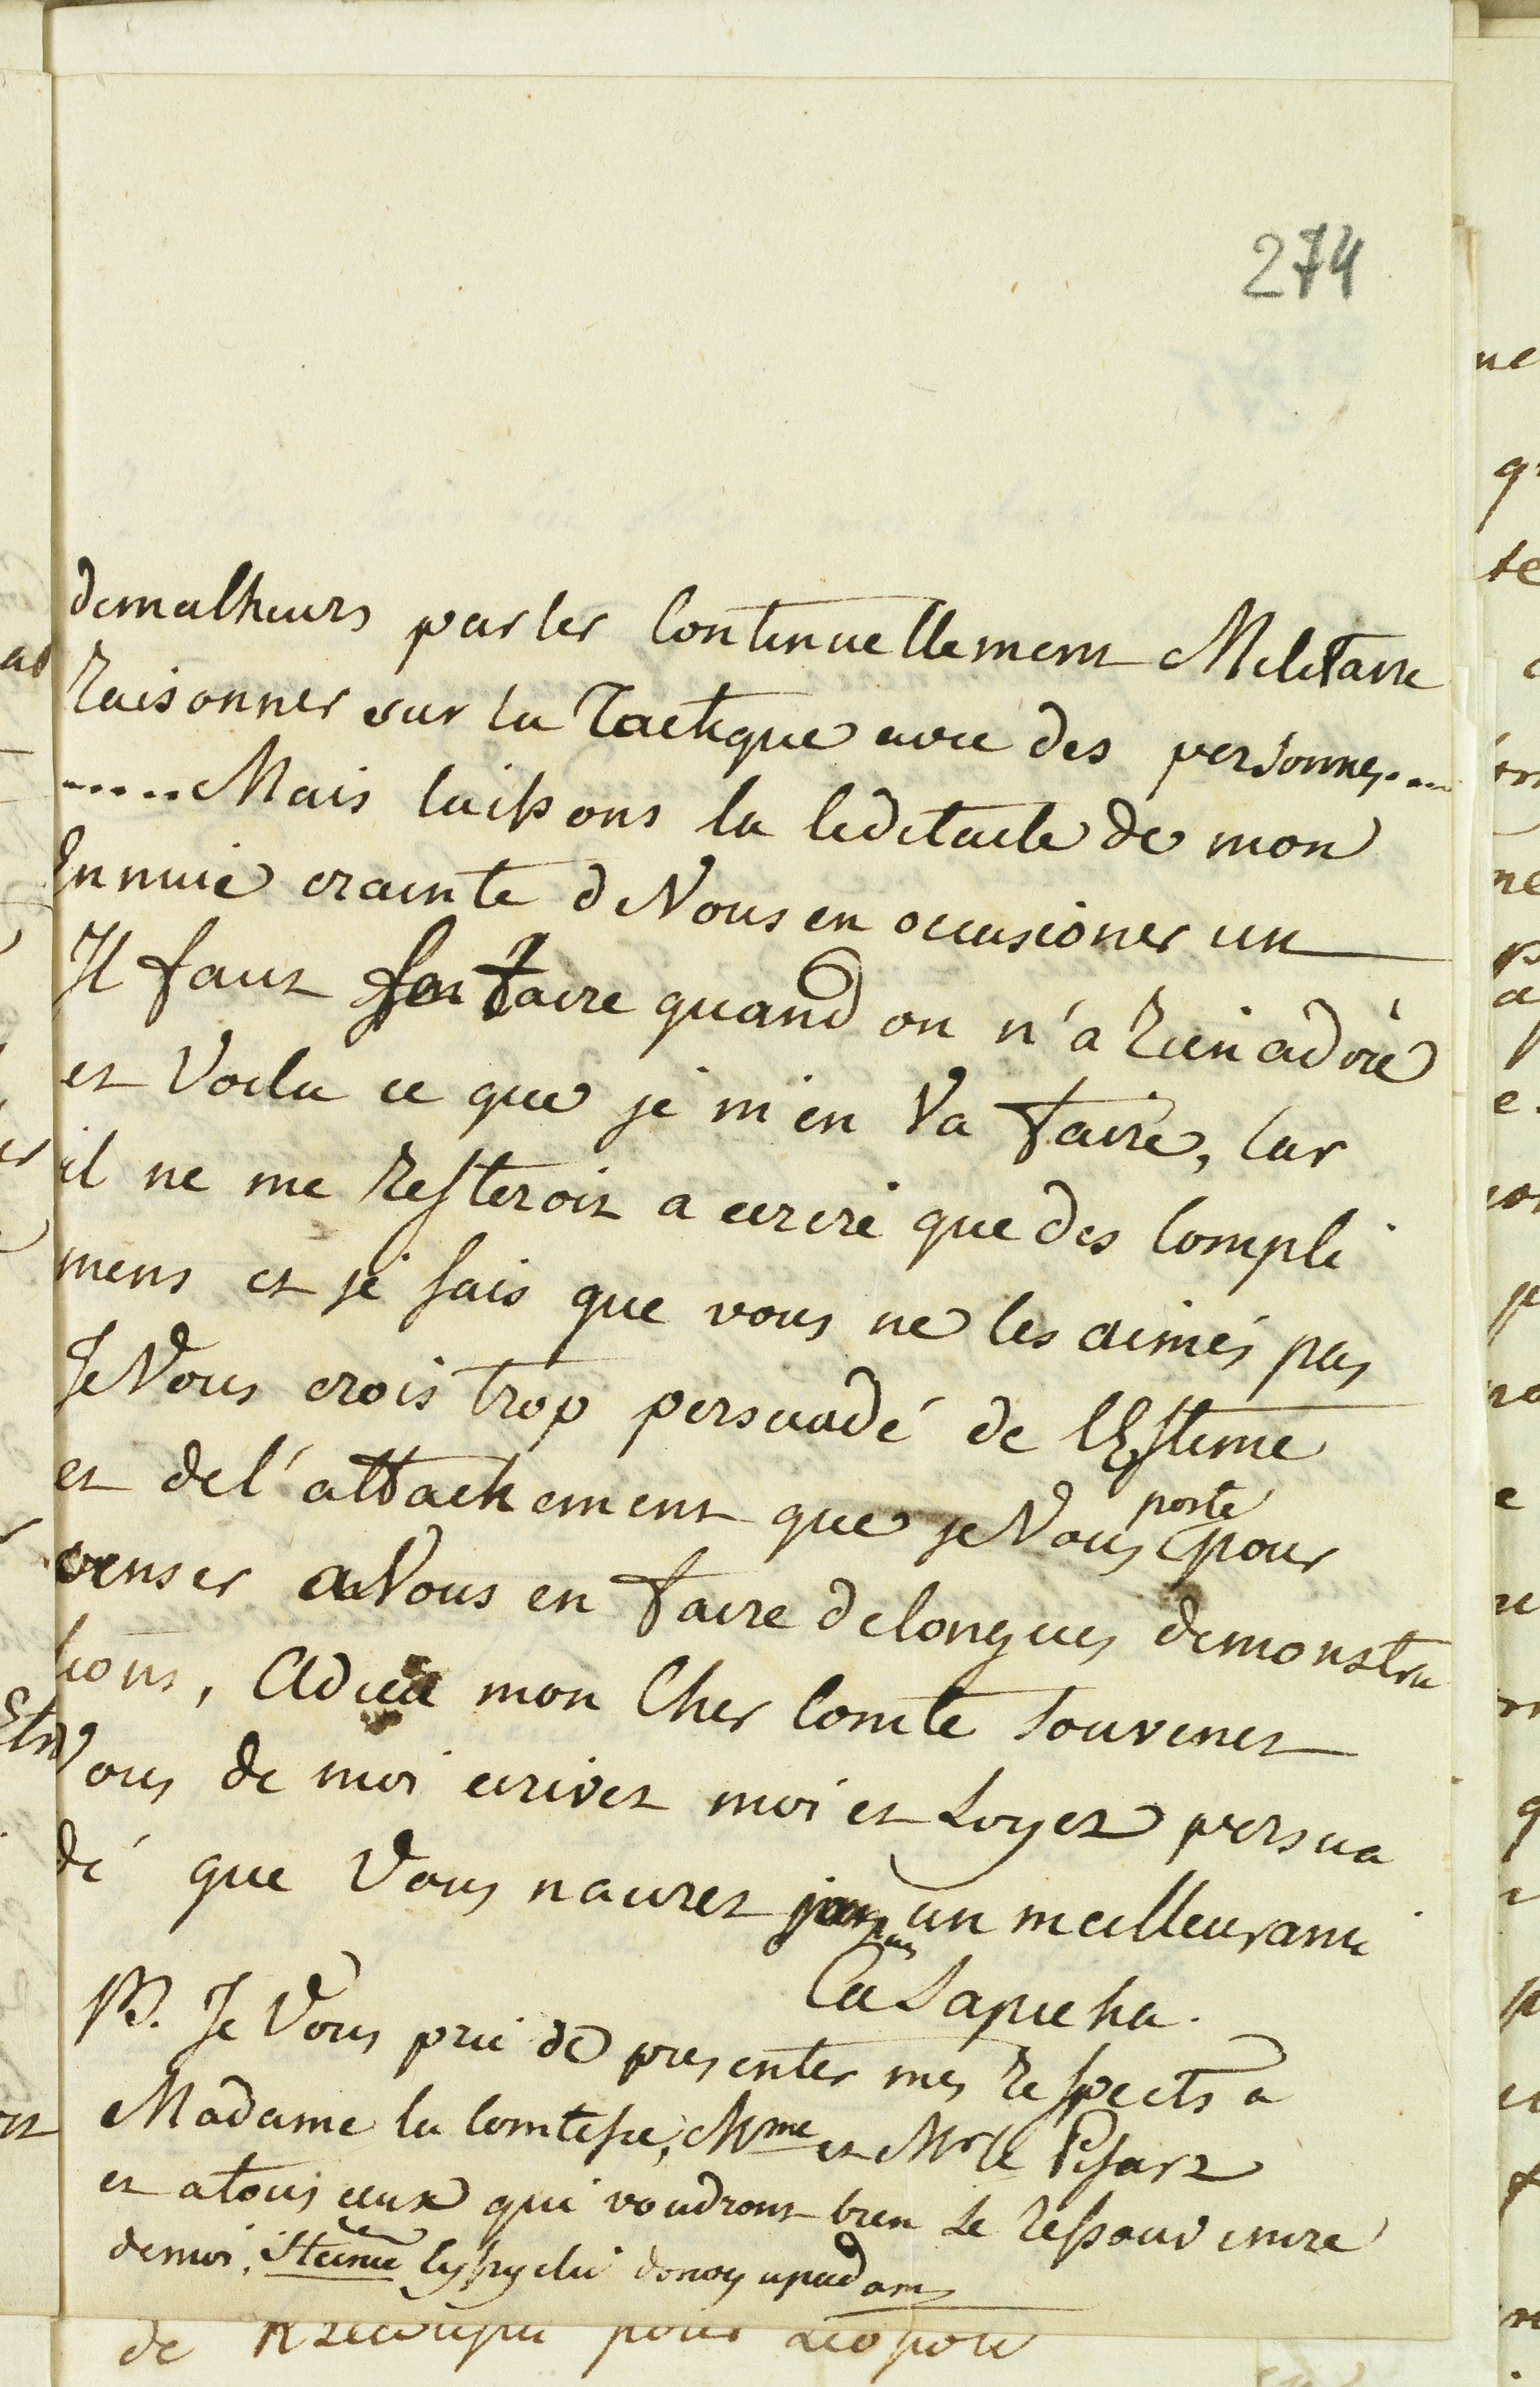 274
demalheurs parler Continuellement Militaire
Raisonner sur la Tactique avec des personnes....
.....Mais laissons la le detaile de mon
Ennuie crainte d Vous en occasioner un
Il faut se taire quand on n'a Rien a dire
et Voila ce que je m'en Va faire, Car
il ne me Resteroit a ecrire que des Compli
mens et je sais que vous ne les aimés pas
Je Vous crois trop persuadé de l'Estime
et del'attachement que je Vous porte pour
penser a Vous en faire delongues demonstra
tions, Adieu mon Cher Comte souvenez
Vous de moi ecrivez moi et soyez persua
dé que Vous naurez jamais un meilleur ami
Ca Sapieha.
PS. Je Vous prie de presenter mes Respects a
Madame la Comtesse, Mme et Mr le Pisarz
et atous ceux qui voudront bien se Ressouvenire
demoi.
de pour